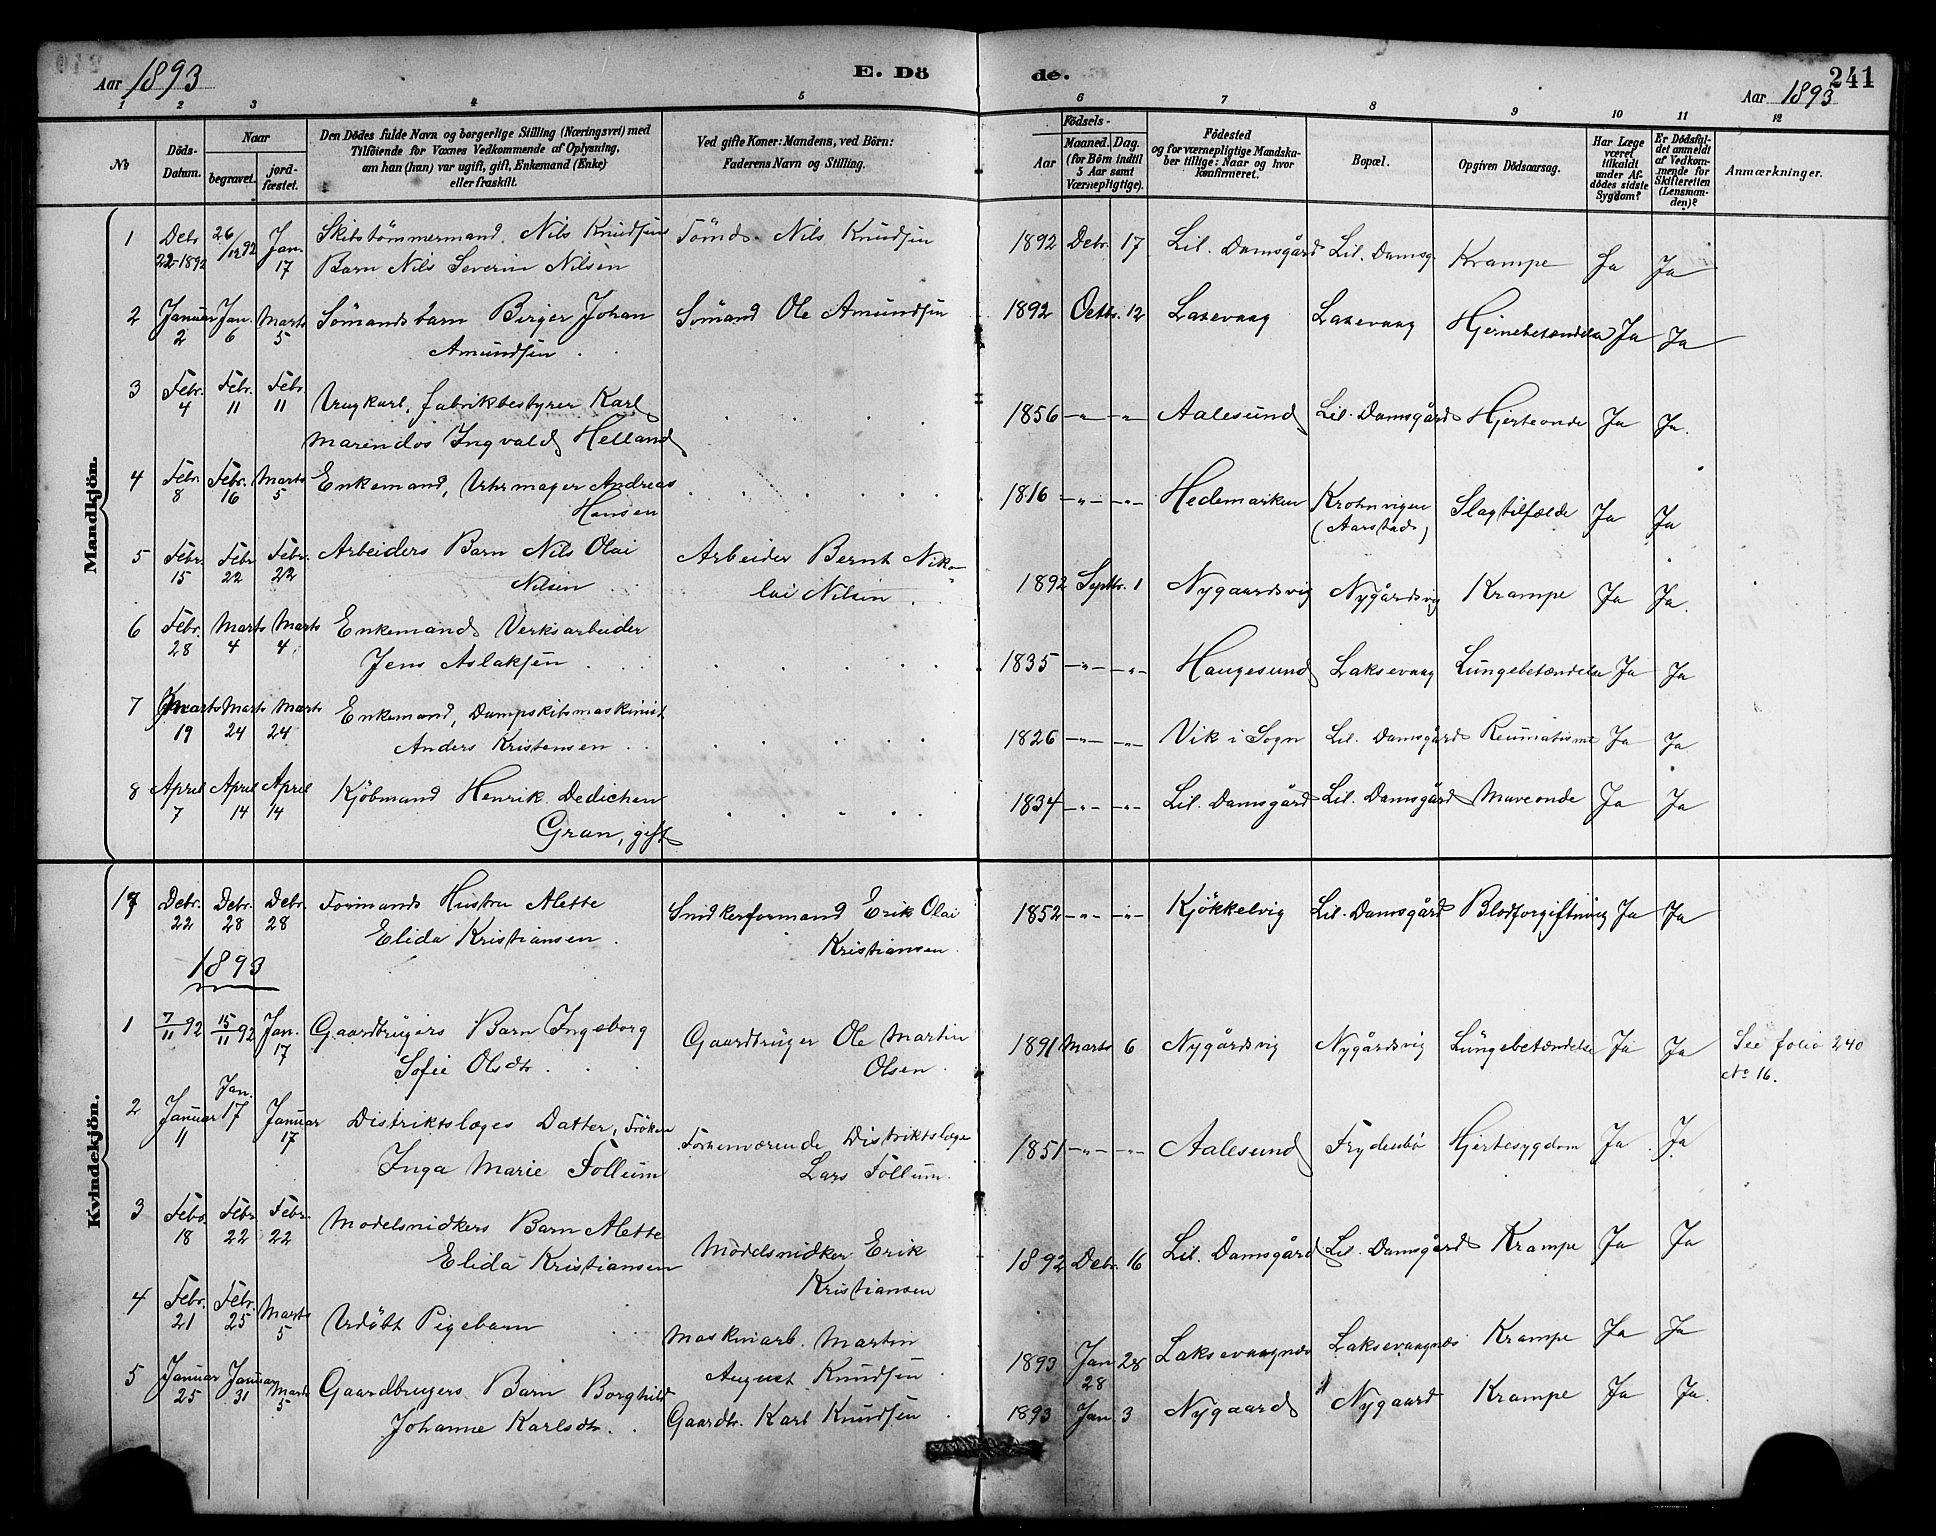 Aar 1893
E. Dö
de.
Aar 1893
241
1 2 3 4 5 6 7 8 9 10 11 12
No
Döds-Datum.
Naar
begravet.
jord-fæstet.
Den Dödes fulde Navn og borgerlige Stilling (Næringsvei) med
Tilföiende for Voxnes Vedkommende af Oplysning,
om han (hun) var ugift, gift, Enkemand (Enke)
eller fraskilt.
Ved gifte Koner: Mandens, ved Börn:
Faderens Navn og Stilling.
Födsels-
Aar
Maaned. Dag.
(for Börn indtil
5 Aar samt
Værnepligtige).
Födested
og for værnepligtige Mandska-
ber tillige: Naar og hvor
konfirmeret.
Bopæl.
Opgiven Dödsaarsag.
Har Læge
været
tilkaldt
under Af-
dödes sidste
Sygdom?
Er Dödsfal-
det anmeldt
af Vedkom-
mende for
Skifteretten
(Lensman-
den)?
Anmærkninger.
Mandkjön.
1 Debr 22-1892 26/12 92 Jan. 17 Skibstömmermand Nils Knudsens Tömd. Nils Knudsen 1892 Debr. 17 Lil. Damsgård Lil. Damsg. Krampe Ja Ja
Barn Nils Severin Nilsen
2 Januar 2 Jan. 6 Marts 5 Sömandsbarn Birger Johan Sömand Ole Amundsen 1892 Octbr. 12 Laxevaag Laxevaag Hjernebetændelse Ja Ja
Amundsen
3 Febr. 4 Febr. 11 Febr. 11 Ungkarl, fabrikbestyrer Karl 1856 -"- -"- Aalesund Lil. Damsgård Hjerteonde Ja Ja.
Marendos Ingvald Helland
4 Febr. 8 Febr. 16 Marts 5 Enkemand, Uhrmager Andreas 1816 -"- -"- Hedemarken Krohnvigen Slagtilfælde Ja Ja
Hansen (Aarstad)
5 Febr. 15 Febr 22 Febr. 22 Arbeiders Barn Nils Olai Arbeider Bernt Niko- 1892 Septbr. 1 Nygaardsvig Nygårdsvig Krampe Ja Ja.
Nilsen lai Nilsen
6 Febr. 28 Marts 4 Marts 4 Enkemand Verksarbeider 1835 -"- -"- Haugesund Laksevaag Lungebetændelse Ja Ja
Jens Aslaksen
7 Marts 19 Marts 24 Marts 24 Enkemand, Dampskibsmaskinist 1826 -"- -"- Vik i Sogn Lil. Damsgård Reumatisme Ja Ja
Anders Kristensen
8 April 7 April 14 April 14 Kjöbmand Henrik Dedichen 1834 -"- -"- Lil. Damsgård Lil. Damsgård Maveonde Ja Ja
Gran, gift
Kvindekjön.
17 Debr. 22 Debr. 28 Debr. 28 Formands Hustru Alette Snidkerformand Erik Olai 1852 -"- -"- Kjökkelvig Lil. Damsgård Blodforgiftning Ja Ja
Elida Kristiansen. Kristiansen.
1893
1 7/11 92 15/11 92 Jan. 17 Gaardbrugers Barn Ingeborg Gaardbruger Ole Martin 1891 Marts 6 Nygårdsvig Nygårdsvig Lungebetændelse Ja Ja See folio 240
Sofie Olsdtr. Olsen. No 16.
2 Januar 11 Jan. 17 Januar 17 Distriktslæges Datter, Fröken Forhenværende Distriktslæge 1851 -"- -"- Aalesund Frydenbö Hjertesygdom Ja Ja
Inga Marie Follum Lars Follum.
3 Febr. 18 Febr 22 Febr. 22 Modelsnidkers Barn Alette Modelsnidker Erik 1892 Debr. 16 Lil. Damsgård Lil. Damsgård Krampe Ja Ja
Elida Kristiansen Kristiansen
4 Febr. 21 Febr. 25 Marts 5 Udöbt Pigebarn Maskinarb. Martin 1893 Jan 28 28 Laksevaagnæs Laksevaagnæs Krampe Ja Ja
August Knudsen
5 Januar 25 Januar 31 Marts 5 Gaardbrugers Barn Borghild Gaardbr. Karl Knudsen 1893 Jan. 3 Nygaard Nygaard Krampe Ja Ja.
Johanne Karlsdtr.